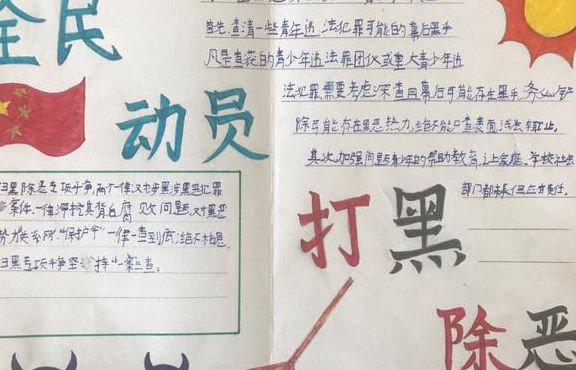 全民
动员
首先,查清一些青年违法犯罪可能的幕后黑手
凡是查获的青少年违法罪团伙或重大青少年违
法犯罪,需要考虑深查因幕后可能存在黑手,务必
除可能存在黑恶势力,绝不能只查表面,浅尝辄止。
其次,加强问题青少年的帮助教育,让家庭、学校社会
部门都
扫黑除恶专项斗争,两个一律:对涉黑涉恶犯罪
案件,一律深挖其背后腐败问题,对黑恶
势力关系网"保护伞"一律一查到底,绝不姑息
扫黑专项斗争坚持"一案三查。
打黑
除恶